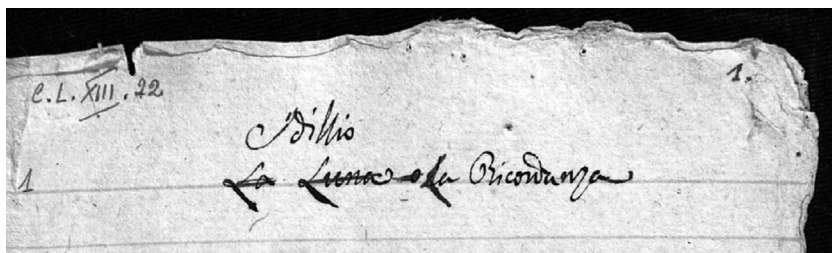 1.
C.L. XIII. 22
Idillio
1
La Luna o la Ricordanza